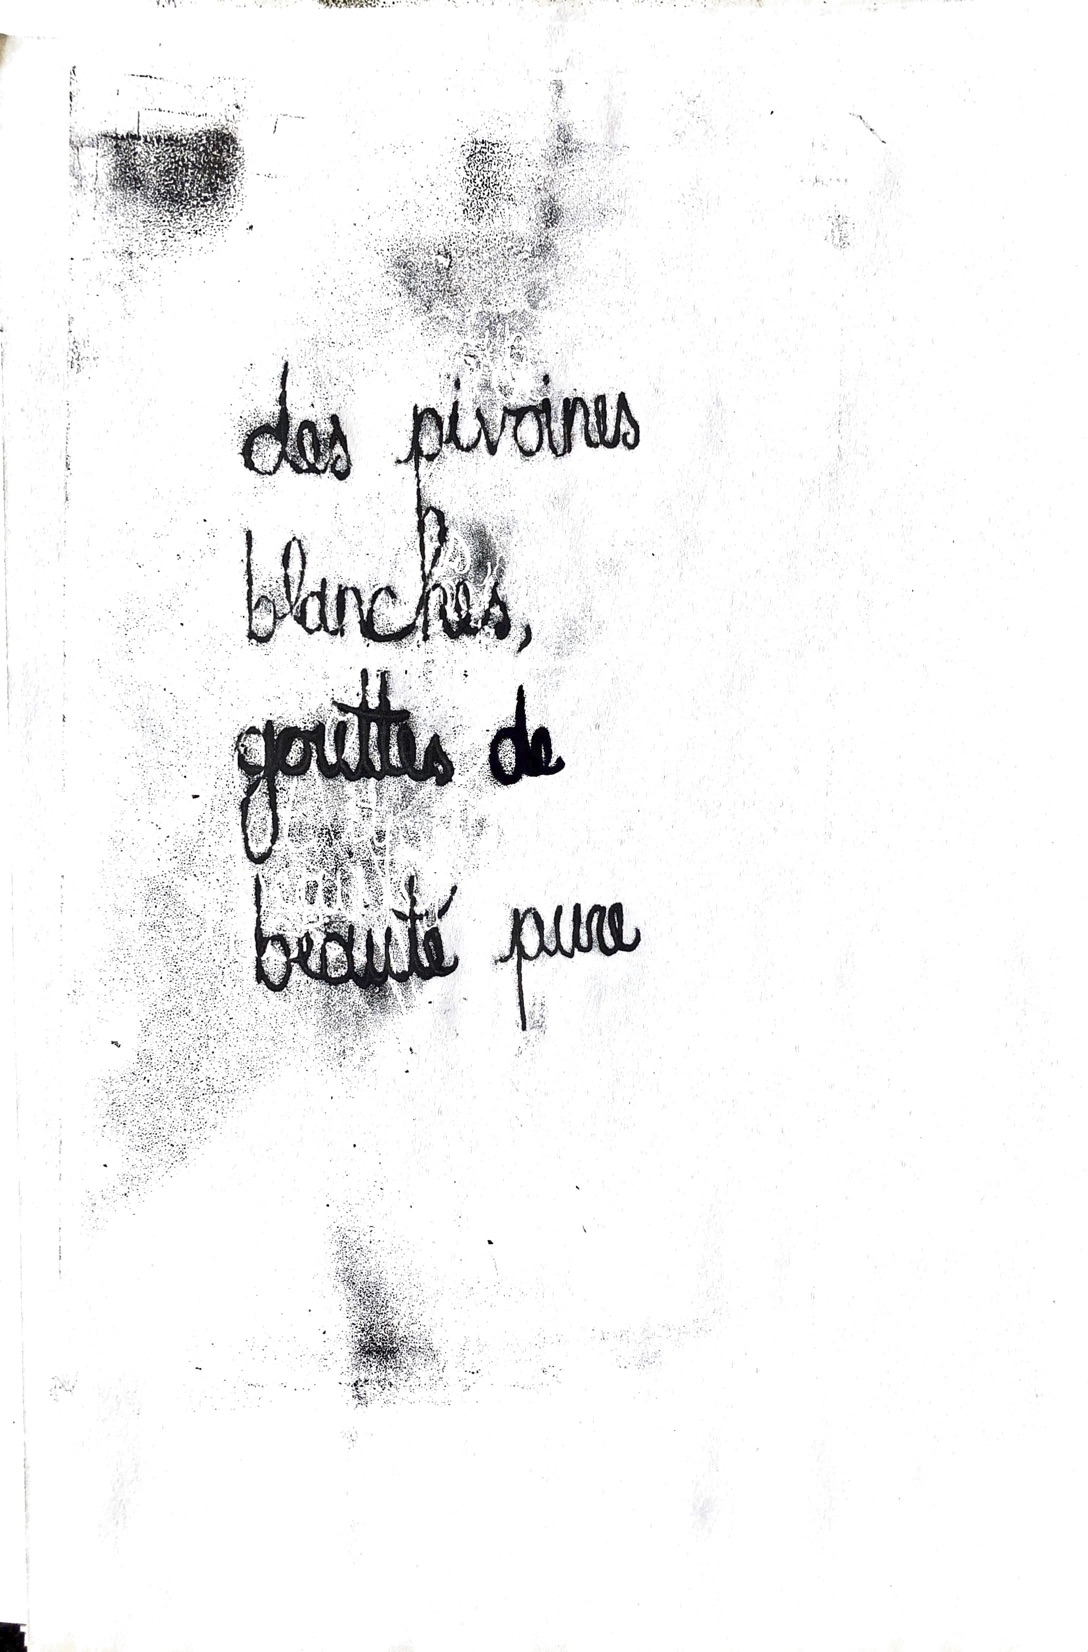 des pivoines
blanches,
gouttes de
beauté pure